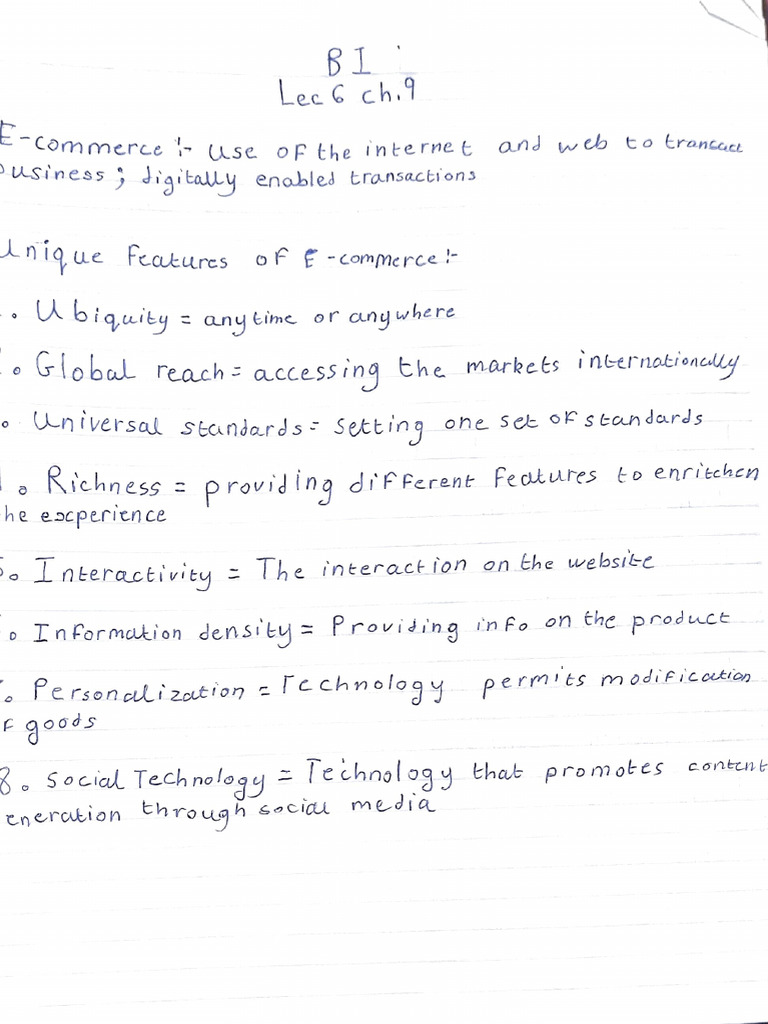 BI
Lec 6 ch.9
E-commerce :- use of the internet and web to transact
business ; digitally enabled transactions
Unique Features of E-commerce :-
. Ubiquity = anytime or anywhere
. Global reach = accessing the markets internationally
. Universal standards = setting one set of standards
. Richness = providing different features to enritchen
he experience
. Interactivity = The interaction on the website
. Information density = Providing info on the product
. Personalization = Technology permits modification
f goods
8. Social Technology = Technology that promotes content
eneration through social media